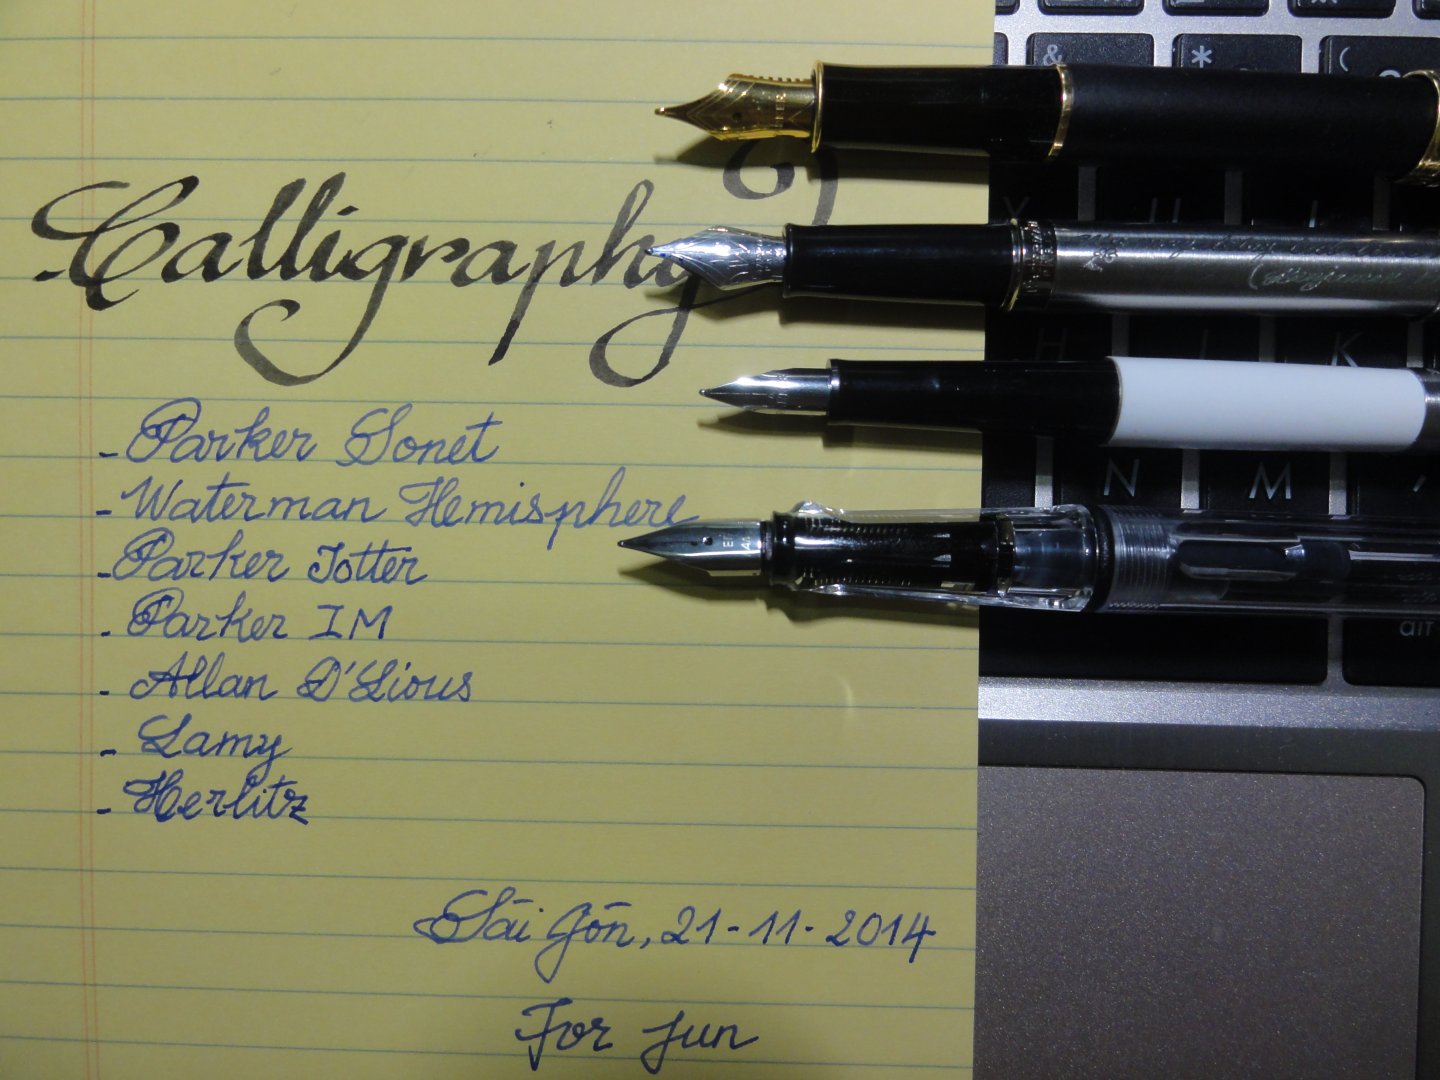 Calligraphy
- Parker Sonet
- Waterman Hemisphere
- Parker Jotter
- Parker IM
- Allan D'Lious
- Lamy
- Herlitz
Sài Gòn, 21-11-2014
For fun
&
*
(
N
M
alt